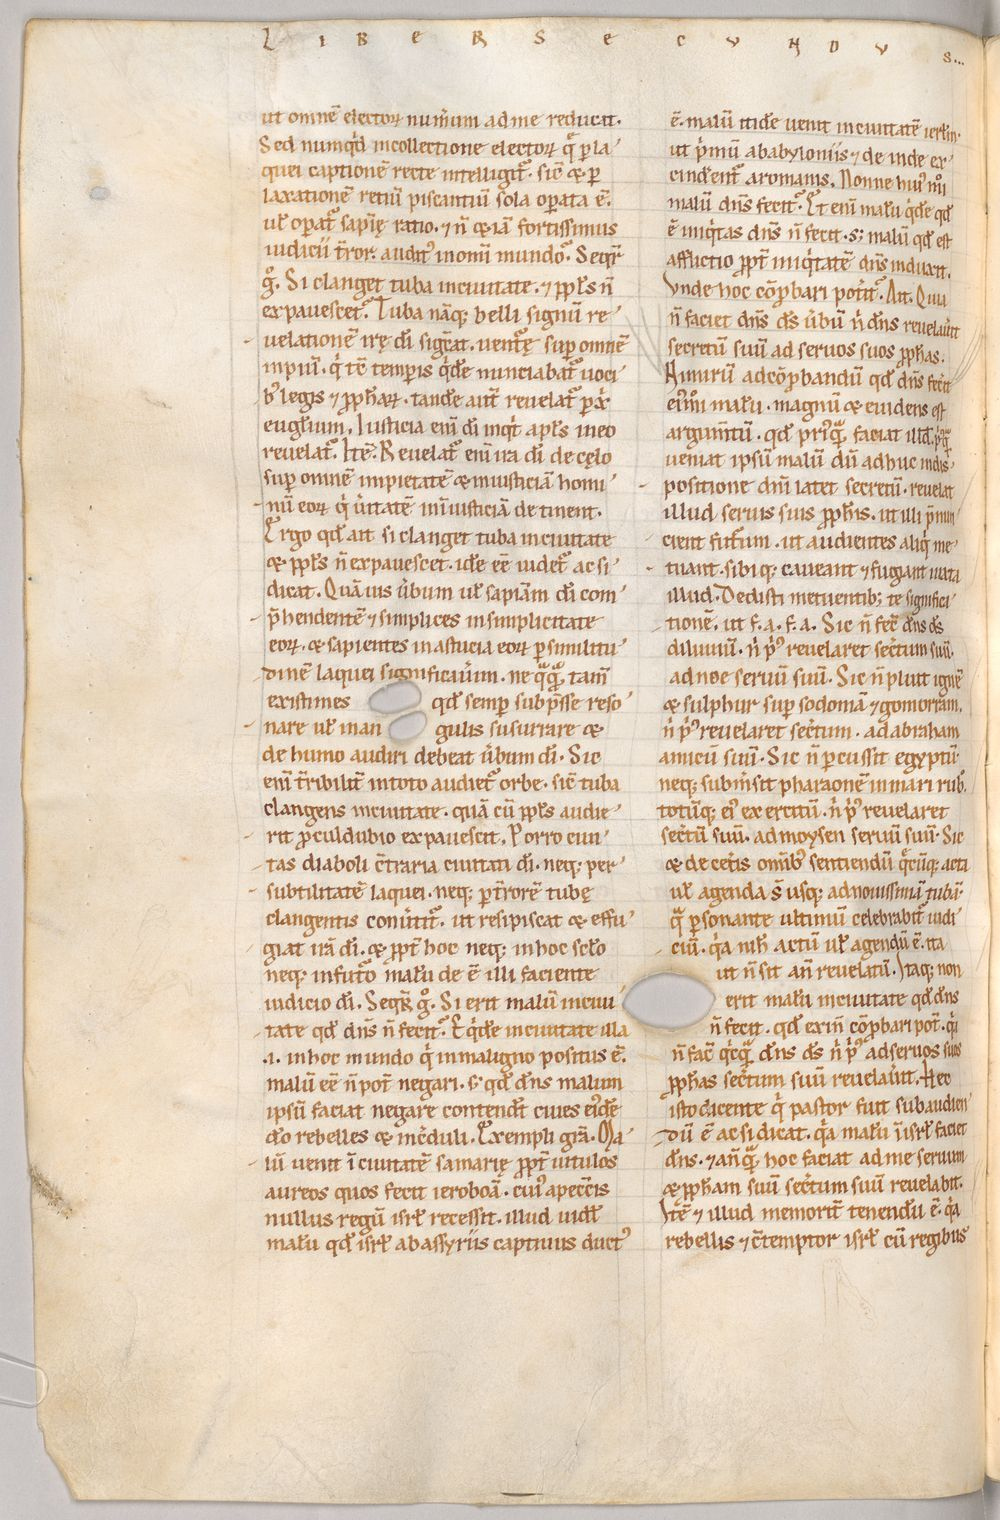 LIBER SECUNDUS...
ut omnē electoꝝ num̄um ad me reducit.
Sed numq̇d incollectione electoꝝ q̄ ꝑ la-
quei captionē recte intelligit᷑. sic̄ & ꝑ
laxationē retiū piscantiū sola oꝑata ē.
ut̄ oꝑat᷑ sapīę ratio. ⁊ n̄ & iā fortissimus
iudicii t̄ror. audit᷑ inomni mundo. Seqr̄
g̊. Si clanget tuba inciuitate. ⁊ ppl̄s n̄
expauescet. Tuba nāq; belli signū re-
uelationē irę dī sig̅cat. uent̄ę sup omnē
impiū. q̇ t̄c temꝑis q̇dē nunciabat᷑ uoci-
b᷒ legis ⁊ ꝓph̄aꝝ. tandē aut̄ reuelat᷑ ꝑ xp̄i
eugl̄ium. Iusticia enī dī inq̇t apl̄s in eo
reuelat᷑. Itē. Reuelat᷑ enī ira dī de cęlo
sup omnē impietatē & iniusticiā homi-
nū eoꝝ q̇ ūitatē inīusticiā detinent.
Ergo qd̄ ait si clanget tuba inciuitate
& ppl̄s n̄ expauescet. idē eē uidet᷑ ac si
dicat. Quāuis ūbum ut̄ sapiām dī com-
p̄hendentē ⁊ simplices insimplicitate
eoꝝ. & sapientes inastucia eoꝝ ꝑ similitu-
dinē laquei significauīm. ne q̄q̊ tam̄
existimes qd̄ semꝑ subp̄sse reso-
nare ut̄ man gulis susurrare &
de humo audiri debeat ūbum dī. Sic
enī t̄ribilit̄ intoto audiet᷑ orbe. sic̄ tuba
clangens inciuitate. quā cū ppl̄s audie-
rit ꝓculdubio expauescit. Porro ciui-
tas diaboli c̄traria ciuitati dī. neq; per
subtilitatē laquei. neq; ꝑ t̄rorē tubę
clangentis conūtit᷑. ut resipiscat & effu-
giat irā dī. & ꝓpt̄ hoc neq; inhoc sclo
neq; infut᷑o malū deē illi faciente
iudicio dī. Seqr̄ g̊. Si erit malū inciui-
tate qd̄ dn̄s n̄ fecit. Eq̇dē inciuitate illa
.i. inhoc mundo q̇ inmaligno positus ē.
malū eē n̄ pot̄ negari. s; qd̄ dn̄s malum
ipsū faciat negare contendt̄ ciues ei᷒dē
do rebelles & inc̄duli. Exempli grā. Ma-
lū uenit īciuitatē samarię ꝓpt̄ uitulos
aureos quos fecit ieroboā. cui᷒ apeccīs
nullus regū isrl̄ recessit. illud uidl̄
malū qd̄ isrl̄ abassyriis captiuus duct᷒
ē. malū itidē uenit inciuitatē ierl̄m.
ut p̄mū ababyloniis ⁊ deinde ex-
cindent᷑ aromanis. Nonne hui᷒m̊i
malū dn̄s fecit. Et enī malū q̇dē qd̄
ē iniq̇tas dn̄s n̄ fecit. s; malū qd̄ est
afflictio ꝓpt̄ iniq̇tatē dn̄s induxit.
Vnde hoc cōꝓbari pot̄it. Ait. Quia
n̄ faciet dn̄s ds̄ ūbū n̄ dn̄s reuelaūit
secretū suū ad seruos suos ꝓph̄as.
Nimirū adcōꝓbandū qd̄ dn̄s fec̄it
ei᷒m̊i malū. magnū & euidens est
argum̄tū. qd̄ pri᷒q̄ faciat illd̄. p᷒q̄
ueniat ipsū malū dū adhuc indis-
positione dnī latet secretū. reuelat
illud seruis suis ꝓph̄is. ut illi p̄nun-
cient fut᷑um. ut audientes aliq̇ me-
tuant. sibiq; caueant ⁊ fugiant iuxta
illud. Dedisti metuentib; te signifi-
tionē. ut f. a. f. a. Sic n̄ fec̄ dn̄s ds̄
diluuiū. n̄ p᷒ reuelaret sec̄tum suū.
ad noe seruū suū. Sic n̄ pluit ignē
& sulphur sup sodomā ⁊ gomorram.
n̄ p᷒ reuelaret sec̄tum. ad abraham
amicū suū. Sic n̄ percussit egyptū.
neq; subm̄sit pharaonē inmari rub.
totūq; ei᷒ exercitū. n̄ p᷒ reuelaret
sec̄tū suū. ad moysen seruū suū. Sic
& de cet̄is omīb᷒ sentiendū q̄cūq; acta
ut̄ agenda s̄ usq; ad nouissimā tubā.
q̄ ꝑsonante ultimū celebrabit᷑ iudi-
ciū. q̇a nih̄ actū ut̄ agendū ē. ita
ut n̄ sit an̄ reuelatū. Itaq; non
erit malū inciuitate qd̄ dn̄s
n̄ fecit. qd̄ exin̄ cōꝓbari pot̄. q̇
n̄ fac̄ q̇cq̄ dn̄s ds̄ n̄ p᷒ adseruos suos
ꝓph̄as sec̄tum suū reuelaūit. Hec
isto dicente q̇ pastor fuit subaudien-
dū ē ac si dicat. q̇a malū īisrl̄ faciet
dn̄s. ⁊ an̄q̄ hoc faciat ad me seruum
& ꝓph̄am suū sec̄tum suū reuelabit.
Itē ⁊ illud memorit̄ tenendū ē. q̇a
rebellis ⁊ c̄temptor isrl̄ cū regibus